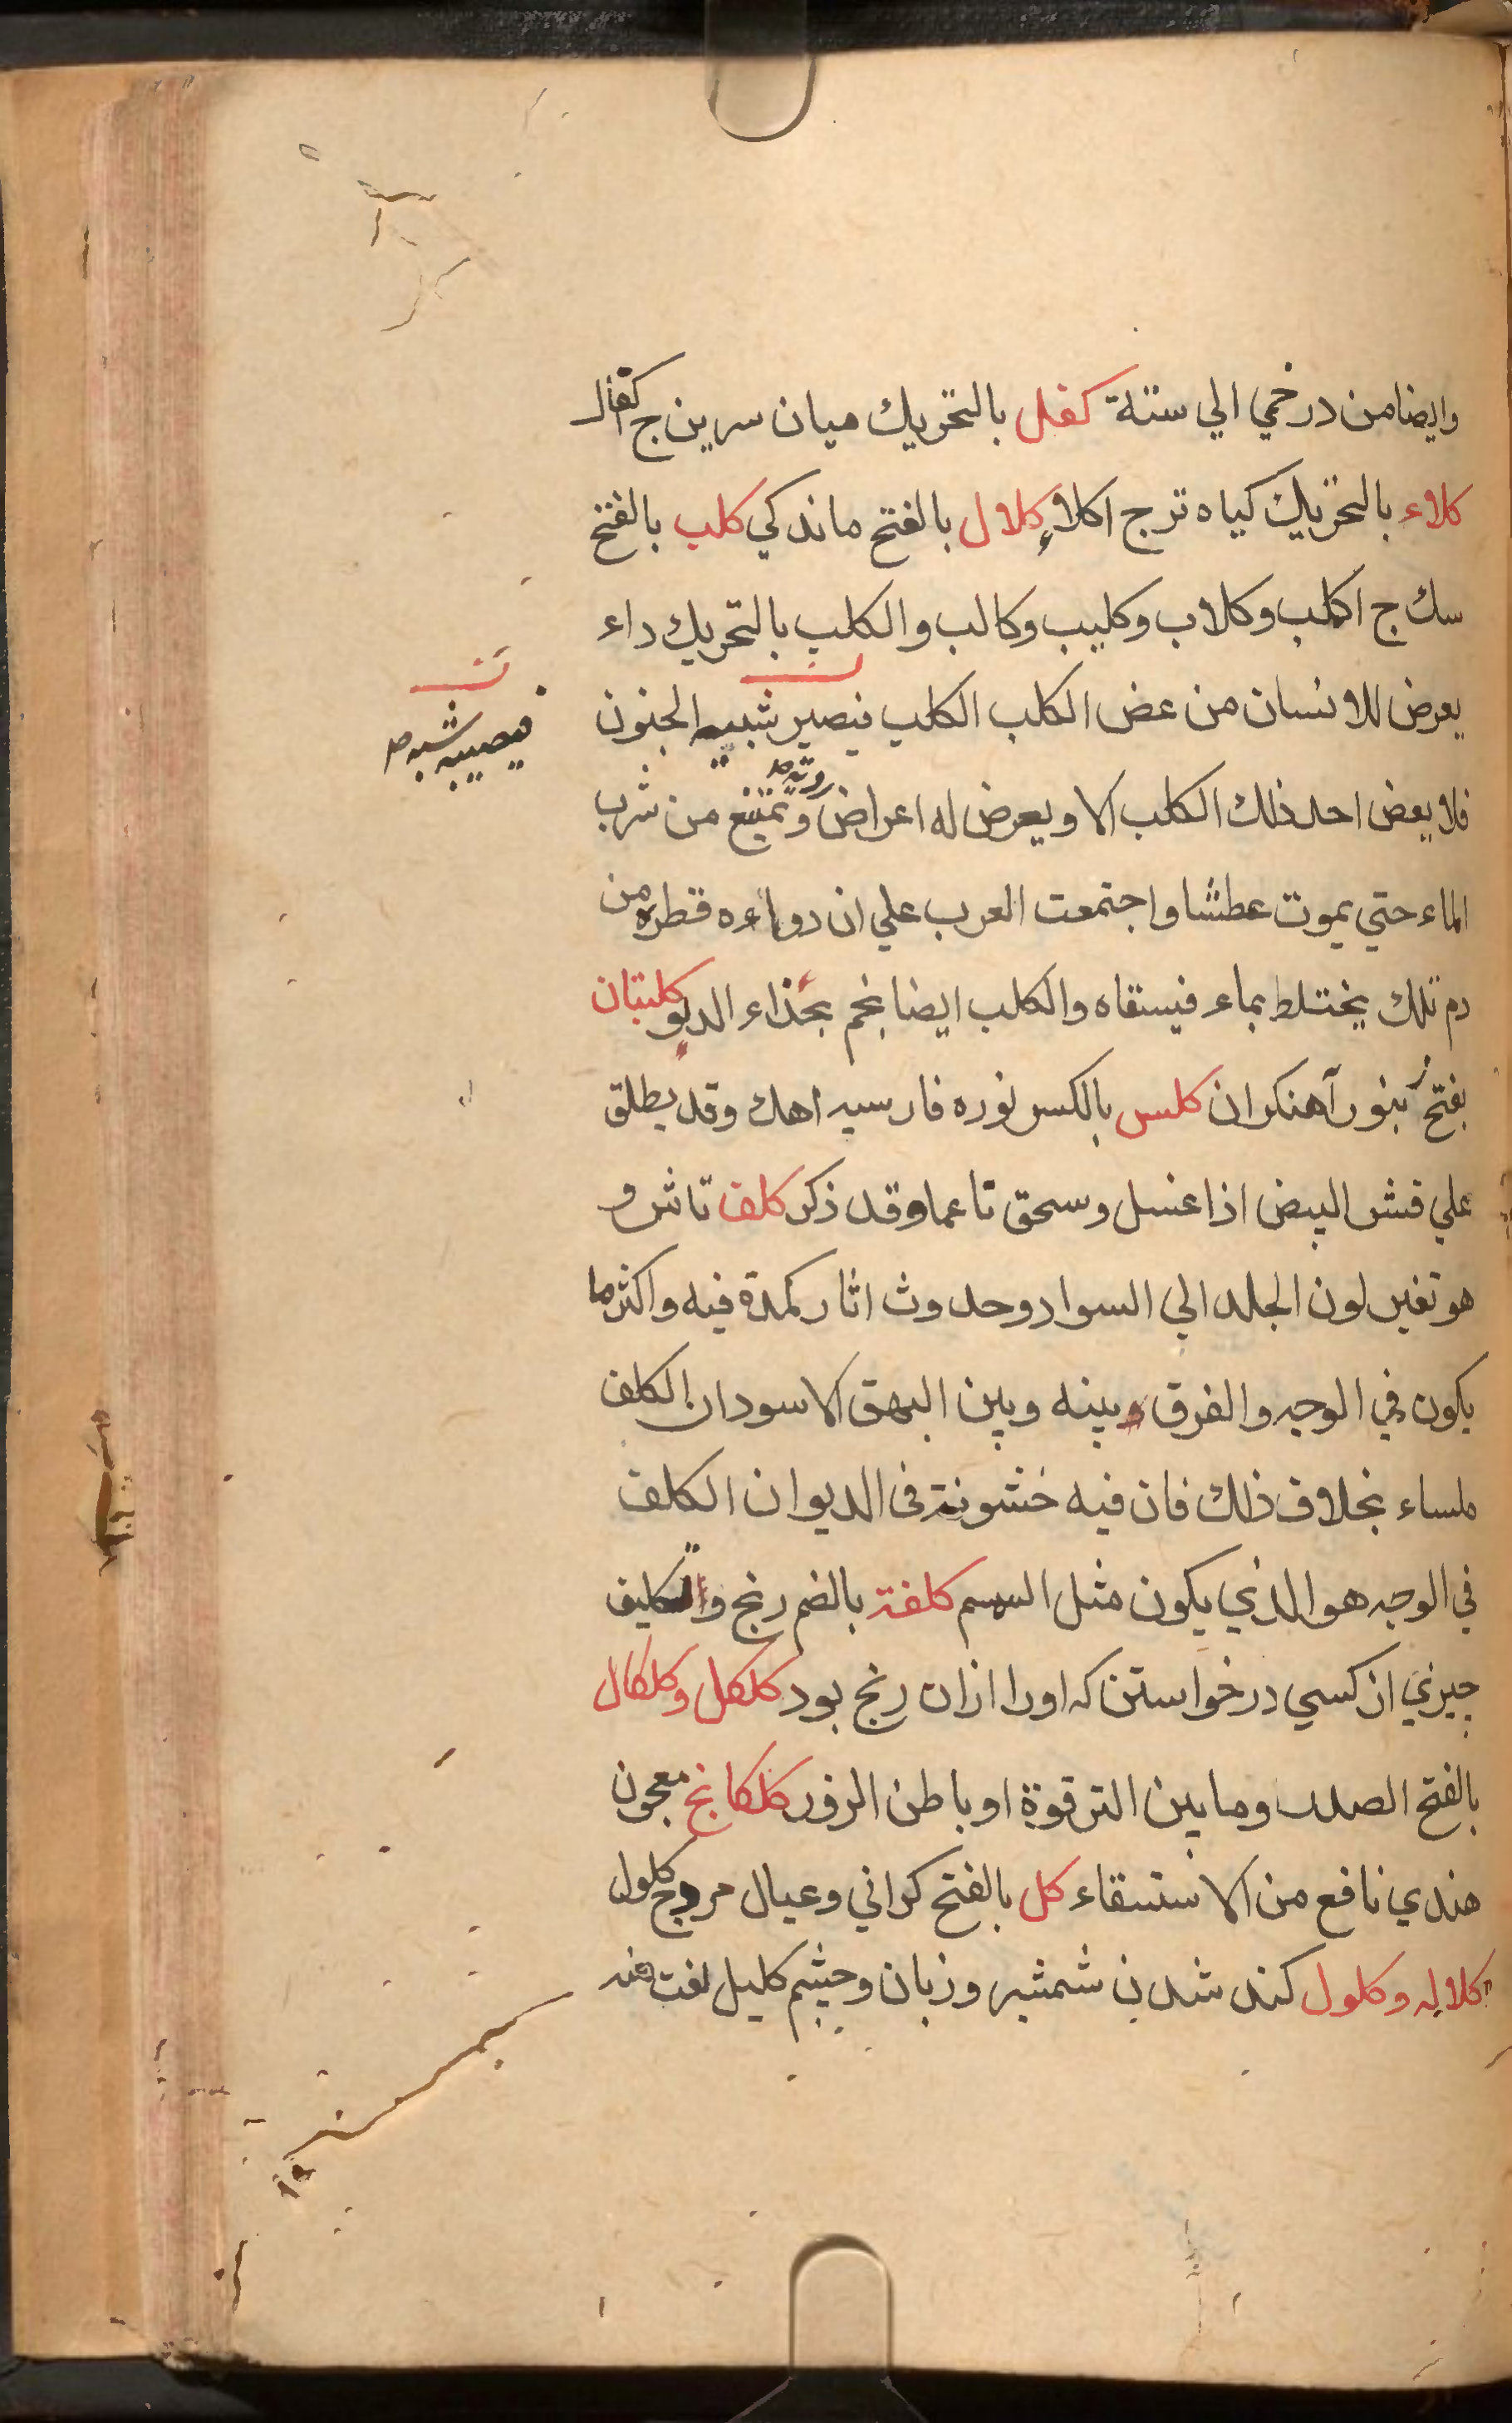 وايضا من درخمي الي ستة كفل بالتحريك ميان سرين ج كفال
كلاء بالتحريك كياه تر ج اكلاء كلال بالفتح ماندكي كلب بالفتح
سك ج اكلب وكلاب وكليب وكالب والكلب بالتحريك داء
يعرض للانسان من عض الكلب الكلب فيصير شبيه الجنون
فيصيبه شبه صح
فلا يعض احد ذلك الكلب الا ويعرض له اعراض وتمتنع من شرب
الماء حتي يموت عطشا واجتمعت العرب علي ان دواءه قطره من
دم تلك يختلط بماء فيسقاه والكلب ايضا نجم بحذاء الدلو كلبتان
بفتح انبور آهنكران كلس بالكسر نوره فارسيه اهك وقد يطلق
علي قشر البيض اذا غسل وسحق ناعما وقد ذكر كلف تاش و
هو تغير لون الجلد الي السواد وحدوث اثار كمدة فيه واكثر ما
يكون في الوجه والفرق وبينه وبين البهق الاسود ان الكلف
ملساء بخلاف ذلك فان فيه خشونة فى الديوان الكلف
في الوجه هو الذي يكون مثل السمسم كلفة بالضم رنج والتكليف
چيزي از كسي درخواستن كه اورا ازان رنج بود كلكل وكلكال
بالفتح الصدر وما بين الترقوة او باطن الزور كلكانج معجون
هندي نافع من الاستسقاء كل بالفتح كراني وعيال مرد ج كلول
كلاله وكلول كند شدن شمشير وزبان وچشم كليل لغت منه